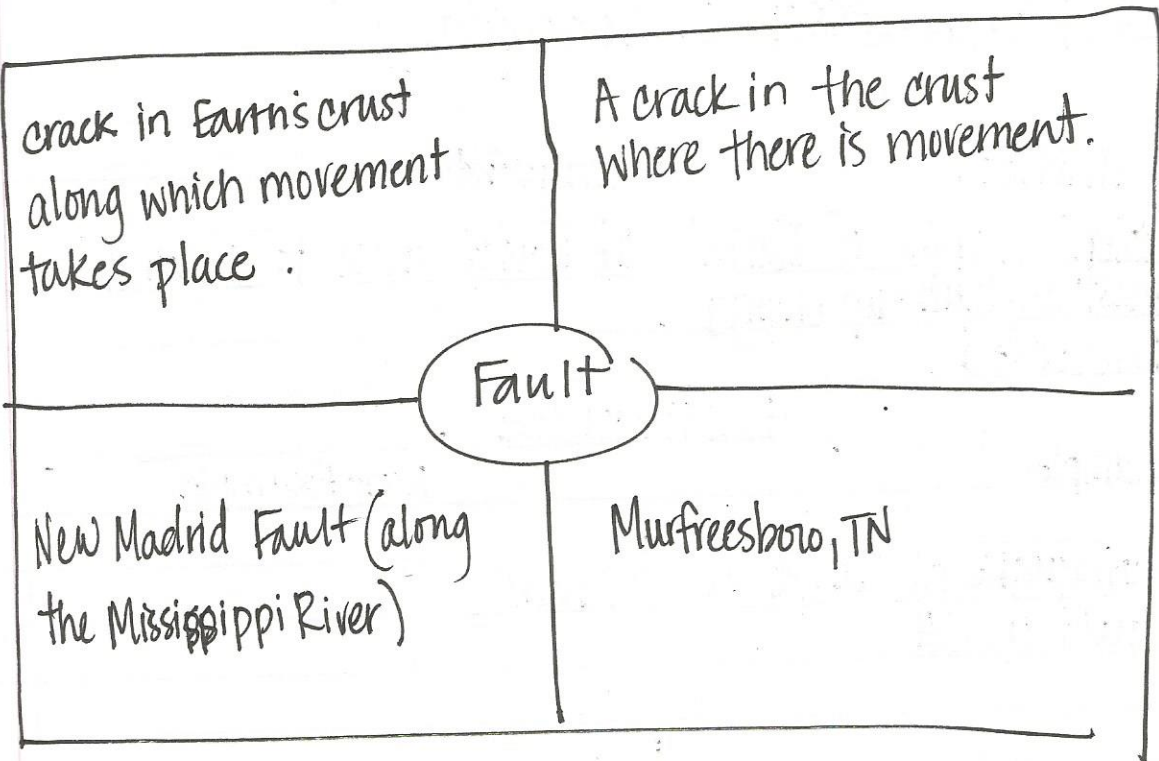 crack in Earth's crust
along which movement
takes place.
A crack in the crust
where there is movement.
Fault
New Madrid Fault (along
the Mississippi River)
Murfreesboro, TN